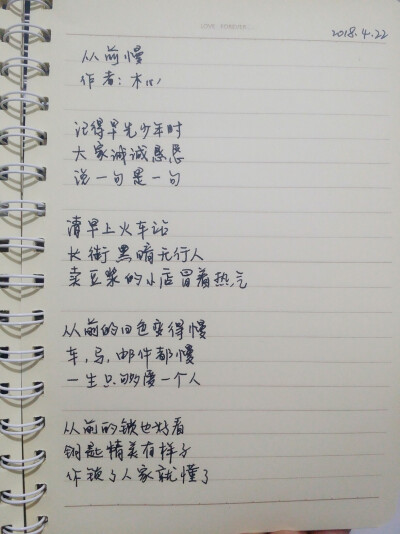 2018.4.22
从前慢
作者:木心
记得早先少年时
大家诚诚恳恳
说一句是一句
清早上火车站
长街黑暗无行人
卖豆浆的小店冒着热气
从前的日色变得慢
车,马,邮件都慢
一生只够爱一个人
从前的锁也好看
钥匙精美有样子
你锁了人家就懂了